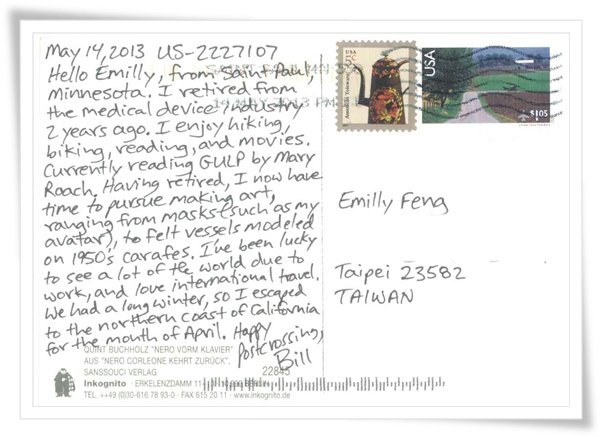 May 14, 2013 US-2227107
Hello Emilly, from Saint Paul,
Minnesota. I retired from
the medical device industry
2 years ago. I enjoy hiking,
biking, reading, and movies.
Currently reading GULP by Mary
Roach. Having retired, I now have
time to pursue making art,
ranging from masks (such as my
avatar), to felt vessels modeled
on 1950's carafes. I've been lucky
to see a lot of the world due to
work, and love international travel.
We had a long winter, so I escaped
to the northern coast of California
for the month of April. Happy
Postcrossing,
Bill
QUINT BUCHHOLZ "NERO VORM KLAVIER"
AUS "NERO CORLEONE KEHRT ZURÜCK",
SANSSOUCI VERLAG 22845
Inkognito · ERKELENZDAMM 11-
TEL. ++49 (0)30-616 78 93-0 · FAX 615 20 11 · www.inkognito.de
USA
5c
American Toleware
USA
$1.05
14 MAY 2013 PM
Emilly Feng
Taipei 23582
TAIWAN